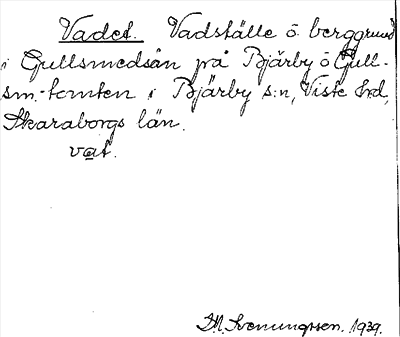 Vadet. Vadställe ö berggrund
i Gullsmedsån på Bjärby ö Gull-
sm.-tomten i Bjärby s:n, Viste hd,
Skaraborgs län.
vat.
Hl. Svenungsson. 1939.